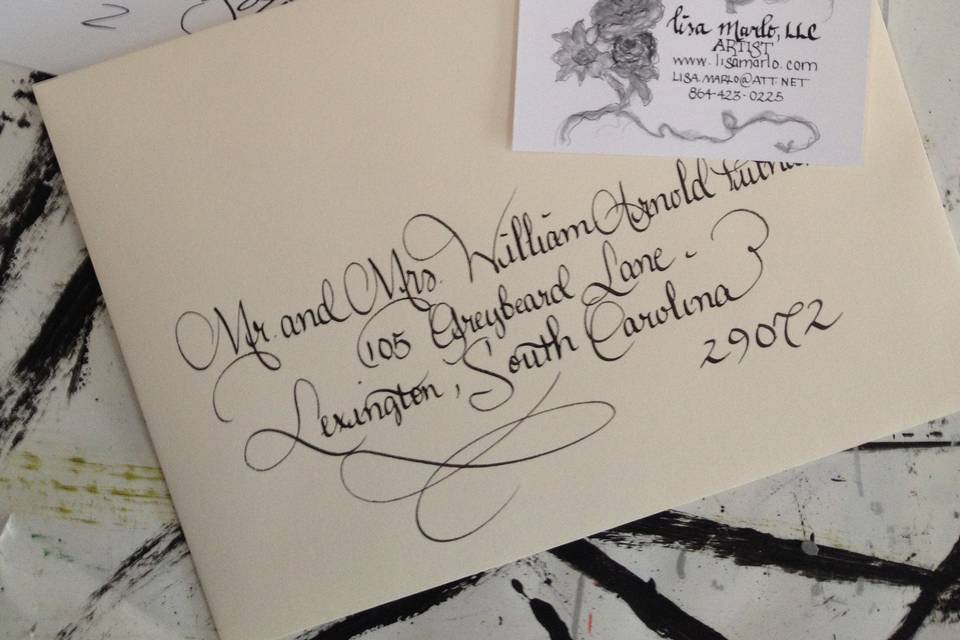 lisa marlo, LLC
ARTIST
www.lisamarlo.com
LISA.MARLO@ATT.NET
864-423-0225
Mr. and Mrs. William Arnold
105 Greybeard Lane -
Lexington, South Carolina
29072